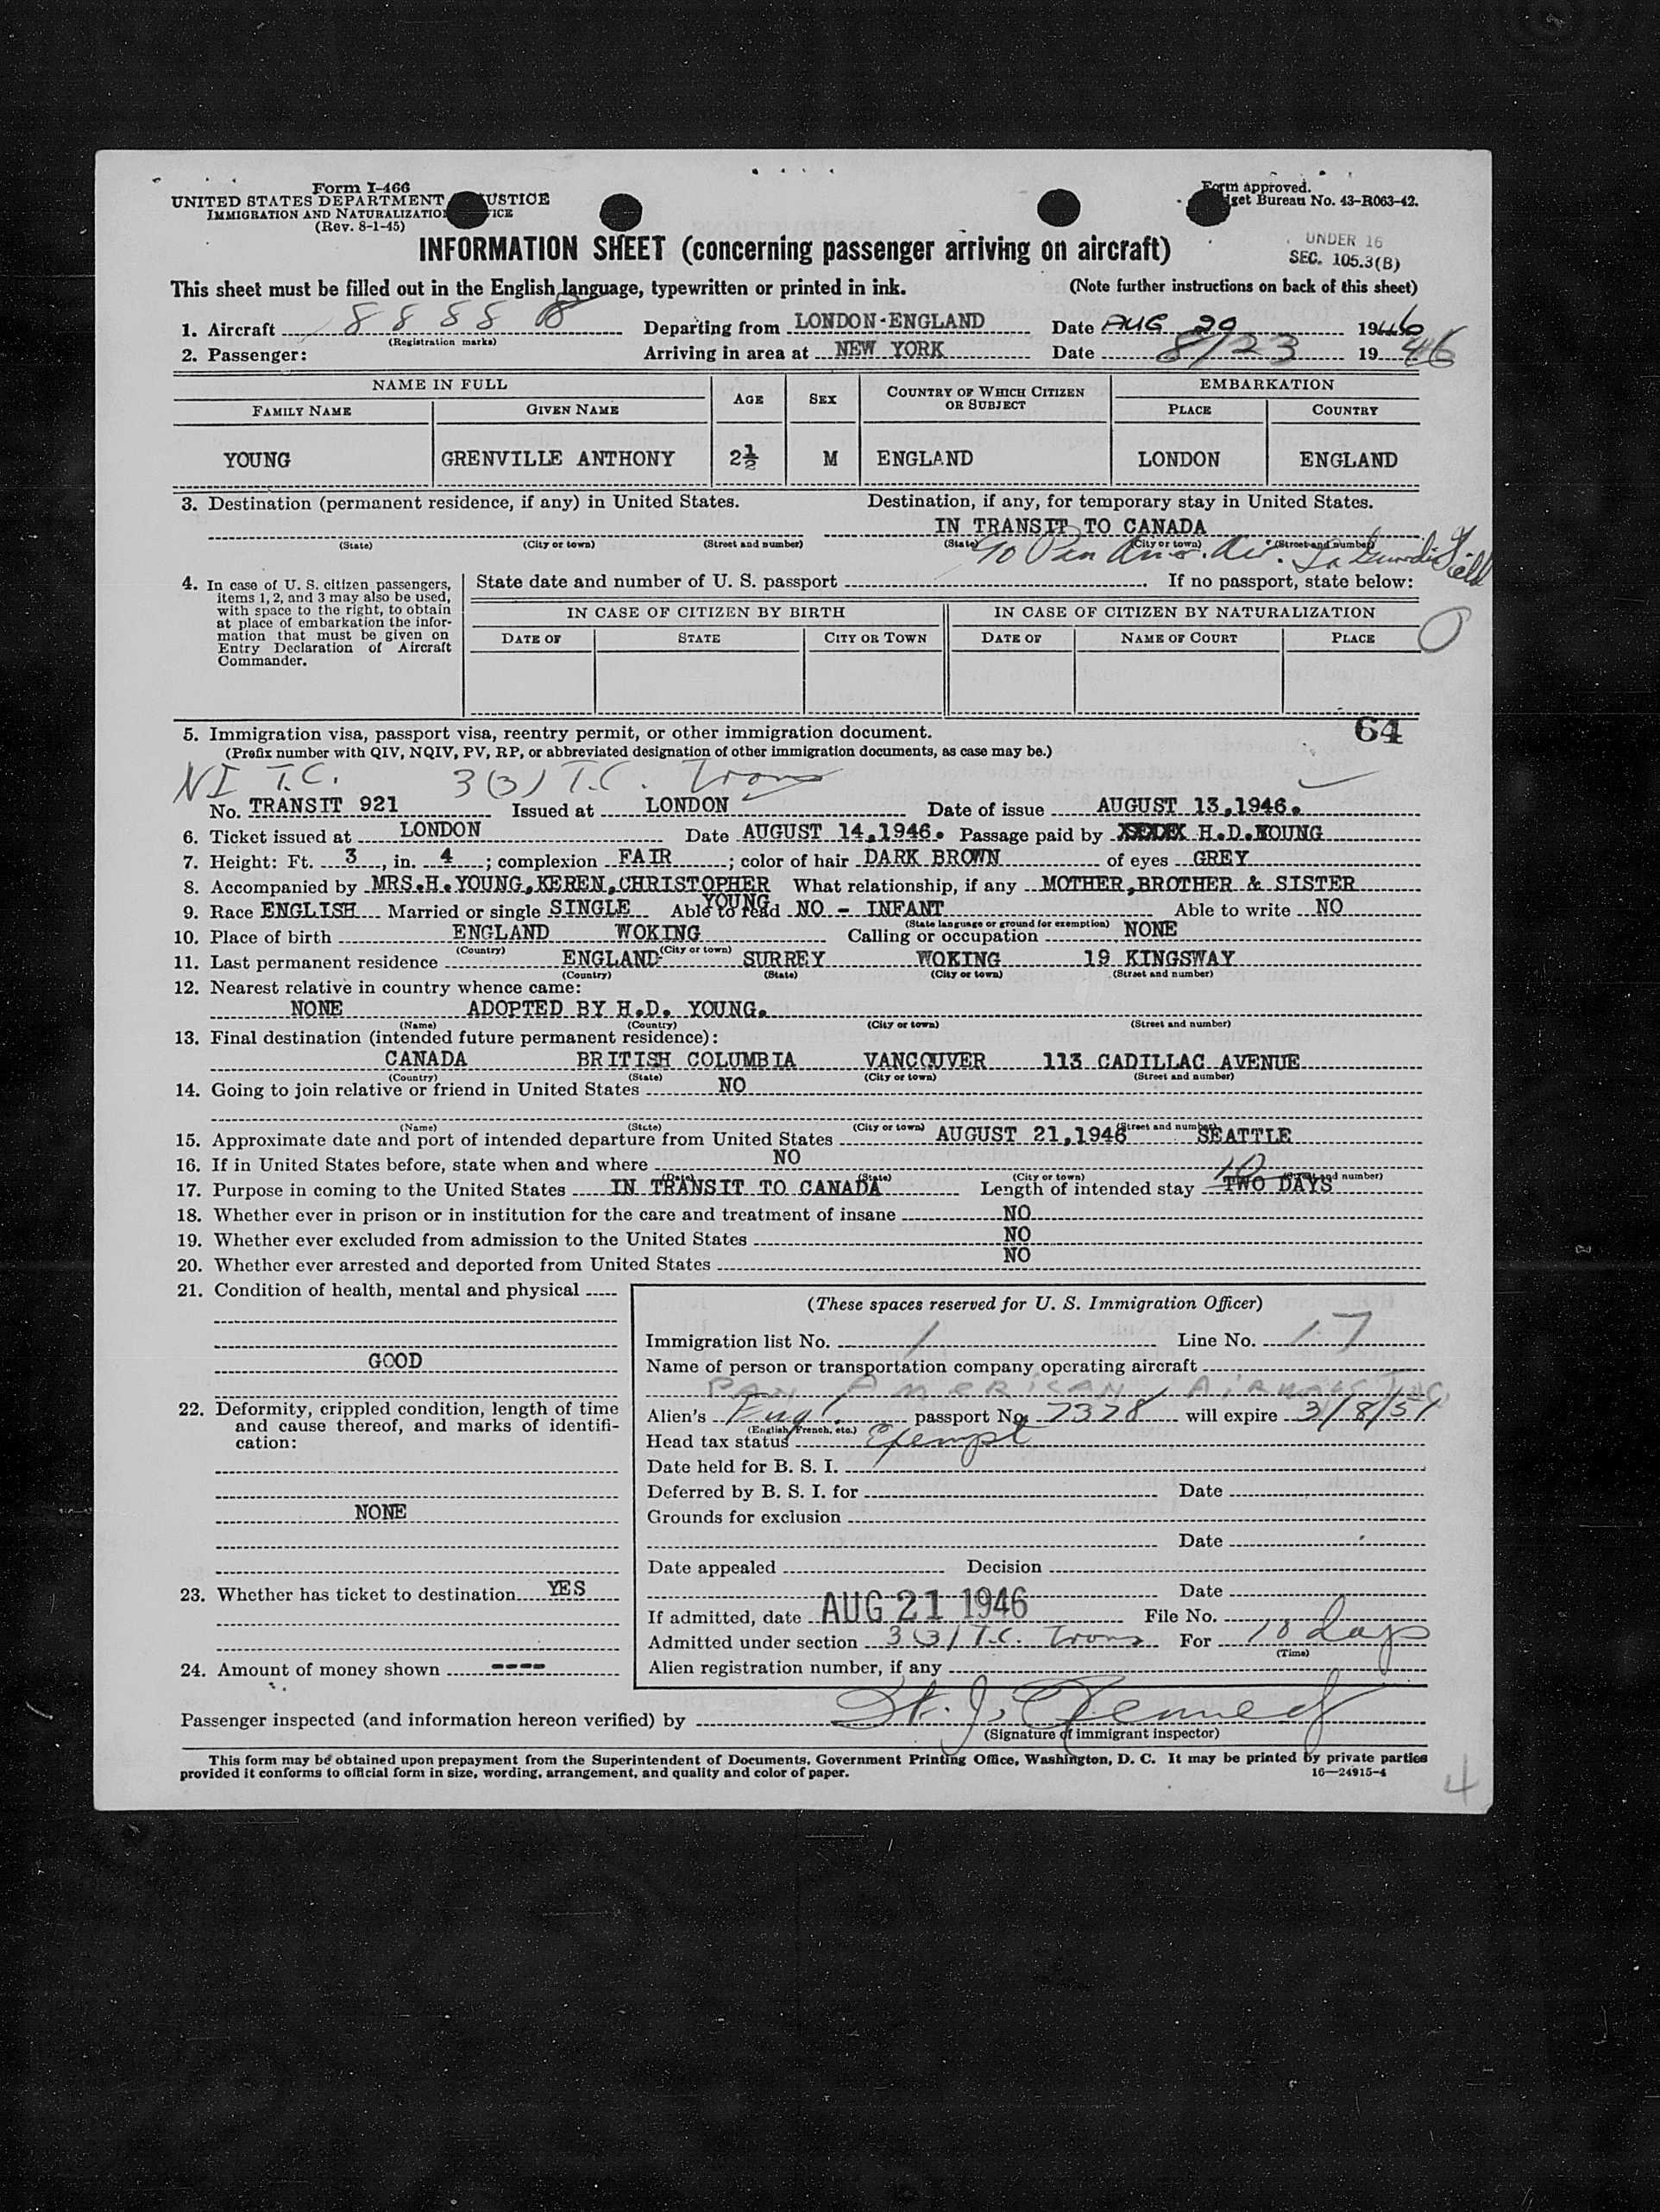 Form I-466
UNITED STATES DEPARTMENT USTICE
IMMIGRATION AND NATURALIZATIO ICE
(Rev. 8-1-45)
Form approved.
get Bureau No. 43-R063-42.
INFORMATION SHEET (concerning passenger arriving on aircraft)
UNDER 16
SEC. 105.3(B)
This sheet must be filled out in the English language, typewritten or printed in ink. (Note further instructions on back of this sheet)
1. Aircraft 8888 Departing from LONDON-ENGLAND Date AUG 20 1946
(Registration marks)
2. Passenger: Arriving in area at NEW YORK Date 8/23 1946
NAME IN FULL AGE SEX COUNTRY OF WHICH CITIZEN OR SUBJECT EMBARKATION
FAMILY NAME GIVEN NAME PLACE COUNTRY
YOUNG GRENVILLE ANTHONY 2½ M ENGLAND LONDON ENGLAND
3. Destination (permanent residence, if any) in United States. Destination, if any, for temporary stay in United States.
IN TRANSIT TO CANADA
(State) (City or town) (Street and number) (State) (City or town) (Street and number)
Pan Am. Air. La Guardia Field
4. In case of U. S. citizen passengers, items 1, 2, and 3 may also be used, with space to the right, to obtain at place of embarkation the information that must be given on Entry Declaration of Aircraft Commander.
State date and number of U. S. passport If no passport, state below:
IN CASE OF CITIZEN BY BIRTH IN CASE OF CITIZEN BY NATURALIZATION
DATE OF STATE CITY OR TOWN DATE OF NAME OF COURT PLACE
64
5. Immigration visa, passport visa, reentry permit, or other immigration document.
(Prefix number with QIV, NQIV, PV, RP, or abbreviated designation of other immigration documents, as case may be.)
NI T.C. 3(3) T.C. Trans
No. TRANSIT 921 Issued at LONDON Date of issue AUGUST 13,1946.
6. Ticket issued at LONDON Date AUGUST 14,1946. Passage paid by H.D.YOUNG
7. Height: Ft. 3, in. 4; complexion FAIR; color of hair DARK BROWN of eyes GREY
8. Accompanied by MRS.H.YOUNG,KEREN,CHRISTOPHER What relationship, if any MOTHER,BROTHER & SISTER
YOUNG
9. Race ENGLISH Married or single SINGLE Able to read NO - INFANT Able to write NO
(State language or ground for exemption)
10. Place of birth ENGLAND WOKING Calling or occupation NONE
(Country) (City or town)
11. Last permanent residence ENGLAND SURREY WOKING 19 KINGSWAY
(Country) (State) (City or town) (Street and number)
12. Nearest relative in country whence came:
NONE ADOPTED BY H.D. YOUNG.
(Name) (Country) (City or town) (Street and number)
13. Final destination (intended future permanent residence):
CANADA BRITISH COLUMBIA VANCOUVER 113 CADILLAC AVENUE
(Country) (State) (City or town) (Street and number)
14. Going to join relative or friend in United States NO
(Name) (State) (City or town) (Street and number)
15. Approximate date and port of intended departure from United States AUGUST 21,1946 SEATTLE
16. If in United States before, state when and where NO
(Date) (State) (City or town) (Street and number)
17. Purpose in coming to the United States IN TRANSIT TO CANADA Length of intended stay TWO DAYS 10
18. Whether ever in prison or in institution for the care and treatment of insane NO
19. Whether ever excluded from admission to the United States NO
20. Whether ever arrested and deported from United States NO
21. Condition of health, mental and physical
GOOD
22. Deformity, crippled condition, length of time and cause thereof, and marks of identification:
NONE
23. Whether has ticket to destination YES
24. Amount of money shown ----
(These spaces reserved for U. S. Immigration Officer)
Immigration list No. 1 Line No. 17
Name of person or transportation company operating aircraft
PAN AMERICAN AIRWAYS INC
Alien's Engl. passport No. 7378 will expire 3/8/51
(English, French, etc.)
Head tax status Exempt
Date held for B. S. I.
Deferred by B. S. I. for Date
Grounds for exclusion
Date
Date appealed Decision
Date
If admitted, date AUG 21 1946 File No.
Admitted under section 3(3) T.C. Trans For 10 days
(Time)
Alien registration number, if any
Passenger inspected (and information hereon verified) by
(Signature of immigrant inspector)
This form may be obtained upon prepayment from the Superintendent of Documents, Government Printing Office, Washington, D. C. It may be printed by private parties
provided it conforms to official form in size, wording, arrangement, and quality and color of paper. 16—24915-4
4